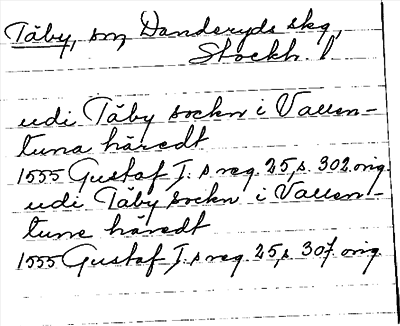 Täby, sn, Danderyds skg,
Stockh. l
udi Täby sockn i Vallen-
tuna häredt
1555 Gustaf I:s reg. 25, s. 302 orig.
udi Täby sockn i Vallen-
tune häredt
1555 Gustaf I:s reg. 25, s. 307 orig.